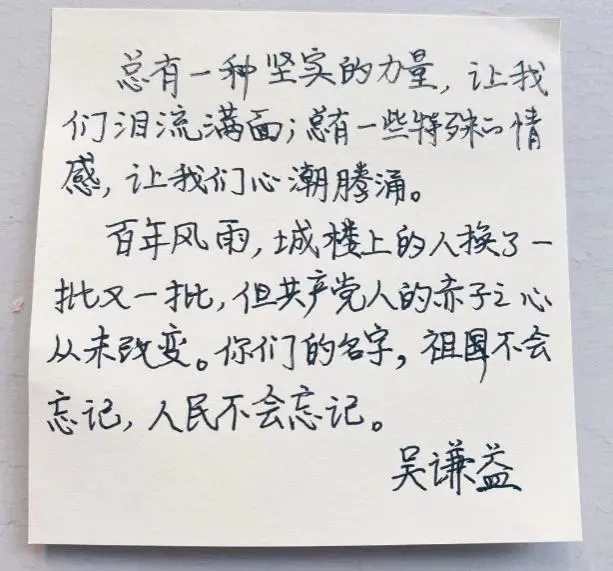 总有一种坚实的力量，让我
们泪流满面；总有一些特殊的情
感，让我们心潮腾涌。
百年风雨，城楼上的人换了一
批又一批，但共产党人的赤子之心
从未改变。你们的名字，祖国不会
忘记，人民不会忘记。
吴谦益